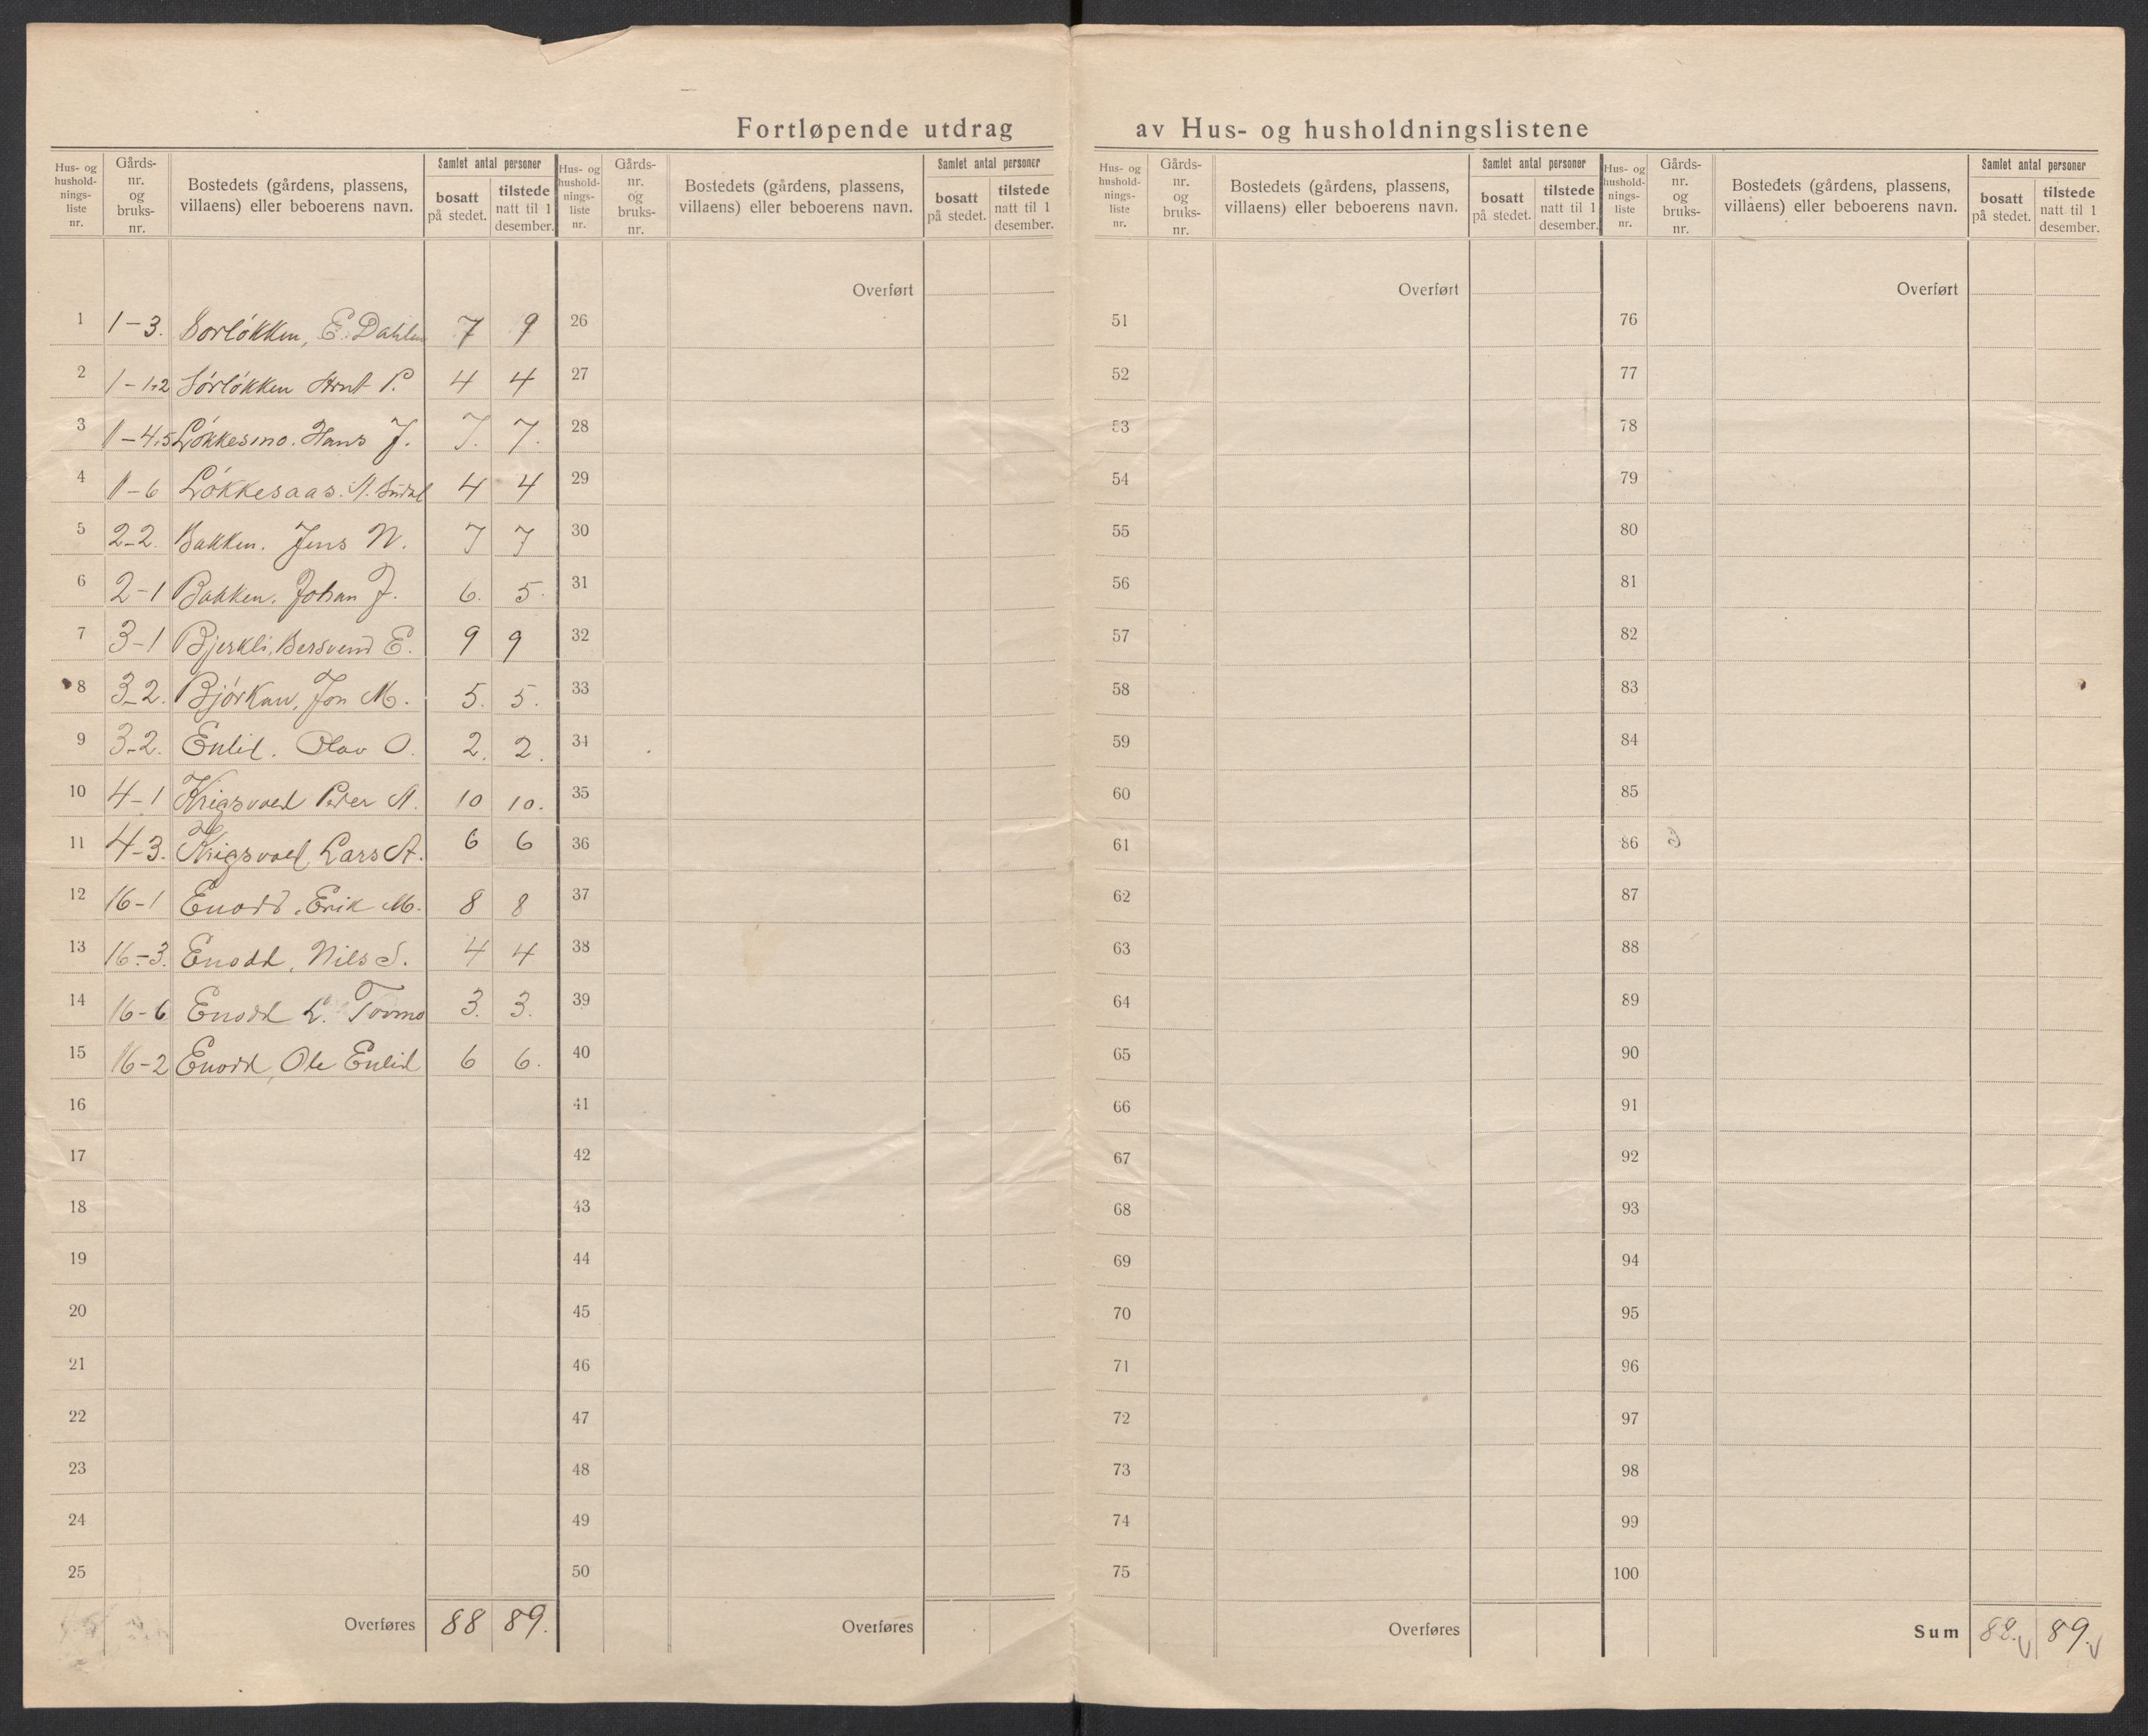 Fortløpende utdrag av Hus- og husholdningslistene
Hus- og hushold-nings-liste nr. | Gårds-nr. og bruks-nr. | Bostedets (gårdens, plassens, villaens) eller beboerens navn. | Samlet antal personer | bosatt på stedet. | tilstede natt til 1 desember.
1 | 1-3. | Sørløkken, E. Dahlen | 7 | 9
2 | 1-1,2 | Sørløkken Arnt P. | 4 | 4
3 | 1-4,5 | Løkkesmo. Hans J. | 7. | 7.
4 | 1-6 | Løkkesaas. | 4 | 4
5 | 2-2. | Bakken. Jens N. | 7 | 7
6 | 2-1 | Bakken. Johan J. | 6. | 5.
7 | 3-1 | Bjerkli, Bersvend E. | 9 | 9
8 | 3-2. | Bjørkan, Jon M. | 5. | 5.
9 | 3-2. | Enlid. Olav O. | 2. | 2.
10 | 4-1 | Krigsvold Peder A. | 10 | 10.
11 | 4-3. | Krigsvold, Lars A. | 6 | 6
12 | 16-1 | Enodd, Erik M. | 8 | 8
13 | 16-3. | Enodd, Nils S. | 4 | 4
14 | 16-6 | Enodd L. Tovmo | 3. | 3.
15 | 16-2 | Enodd, Ole Enlid | 6 | 6.
16
17
18
19
20
21
22
23
24
25
Overføres | 88 | 89.
Hus- og hushold-nings-liste nr. | Gårds-nr. og bruks-nr. | Bostedets (gårdens, plassens, villaens) eller beboerens navn. | Samlet antal personer | bosatt på stedet. | tilstede natt til 1 desember.
Overført
26
27
28
29
30
31
32
33
34
35
36
37
38
39
40
41
42
43
44
45
46
47
48
49
50
Overføres
Hus- og hushold-nings-liste nr. | Gårds-nr. og bruks-nr. | Bostedets (gårdens, plassens, villaens) eller beboerens navn. | Samlet antal personer | bosatt på stedet. | tilstede natt til 1 desember.
Overført
51
52
53
54
55
56
57
58
59
60
61
62
63
64
65
66
67
68
69
70
71
72
73
74
75
Overføres
Hus- og hushold-nings-liste nr. | Gårds-nr. og bruks-nr. | Bostedets (gårdens, plassens, villaens) eller beboerens navn. | Samlet antal personer | bosatt på stedet. | tilstede natt til 1 desember.
Overført
76
77
78
79
80
81
82
83
84
85
86
87
88
89
90
91
92
93
94
95
96
97
98
99
100
Sum | 88. | 89.